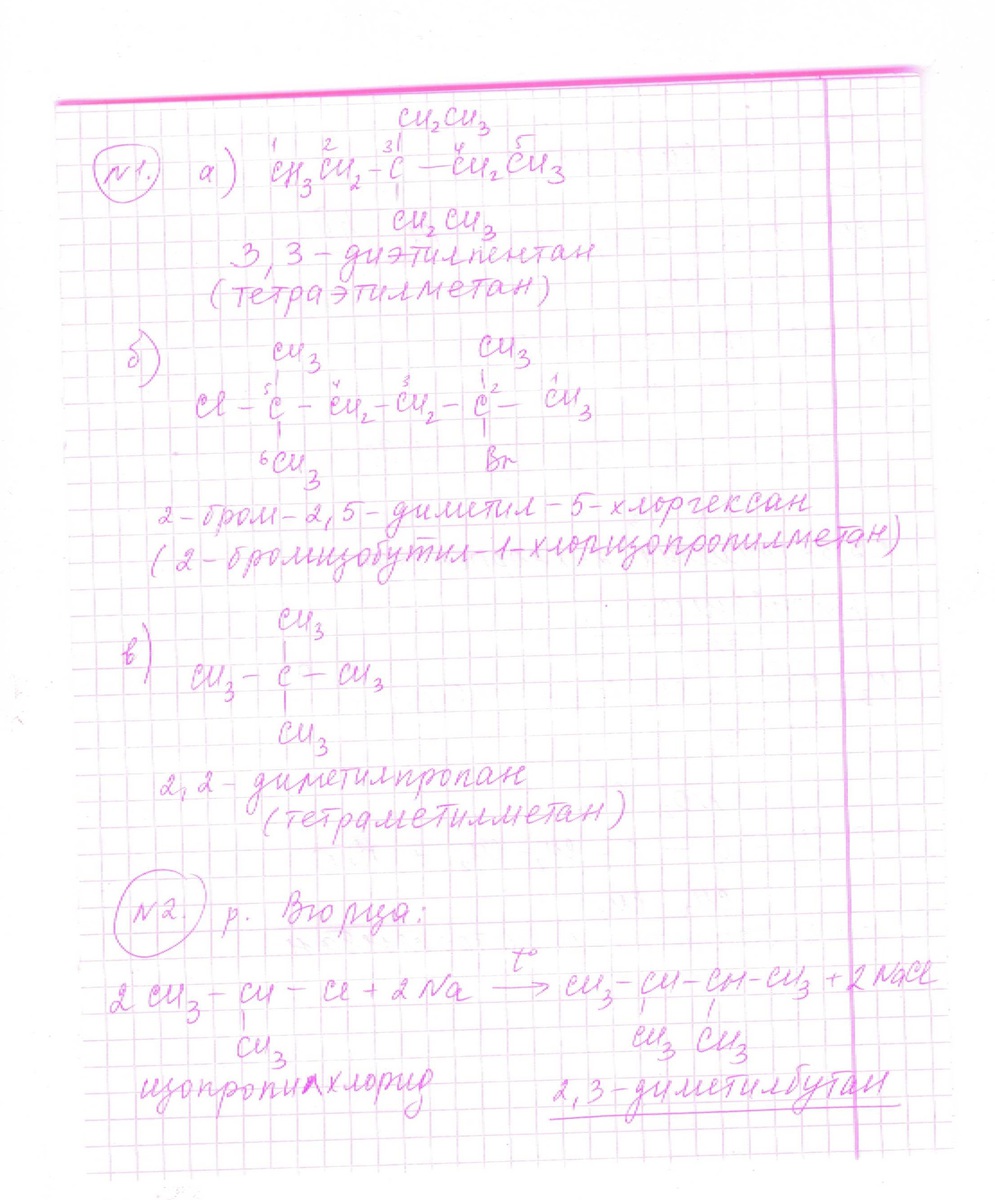 CH₂CH₃
№1. а) ¹CH₃²CH₂-³C-⁴CH₂⁵CH₃
CH₂CH₃
3,3-диэтилпентан
(тетраэтилметан)
б) CH₃ CH₃
Cl-⁵C-⁴CH₂-³CH₂-²C-¹CH₃
⁶CH₃ Br
2-бром-2,5-диметил-5-хлоргексан
(2-бромизобутил-1-хлоризопропилметан)
CH₃
в) CH₃-C-CH₃
CH₃
2,2-диметилпропан
(тетраметилметан)
№2. р. Вюрца:
2CH₃-CH-Cl+2Na t°→ CH₃-CH-CH-CH₃+2NaCl
CH₃ CH₃ CH₃
изопропилхлорид 2,3-диметилбутан